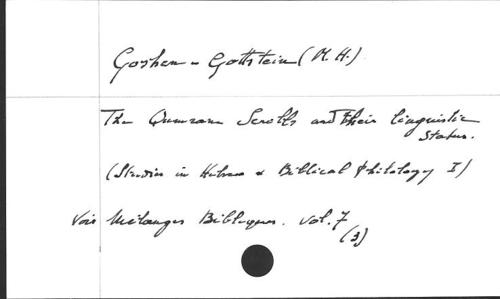 Goshen - Gottstein (M. H.)
The Qumran Scrolls and their linguistic
status.
(Studies in Hebrew & Biblical Philology I)
Voir Mélanges Bibliques. vol. 7
(3)